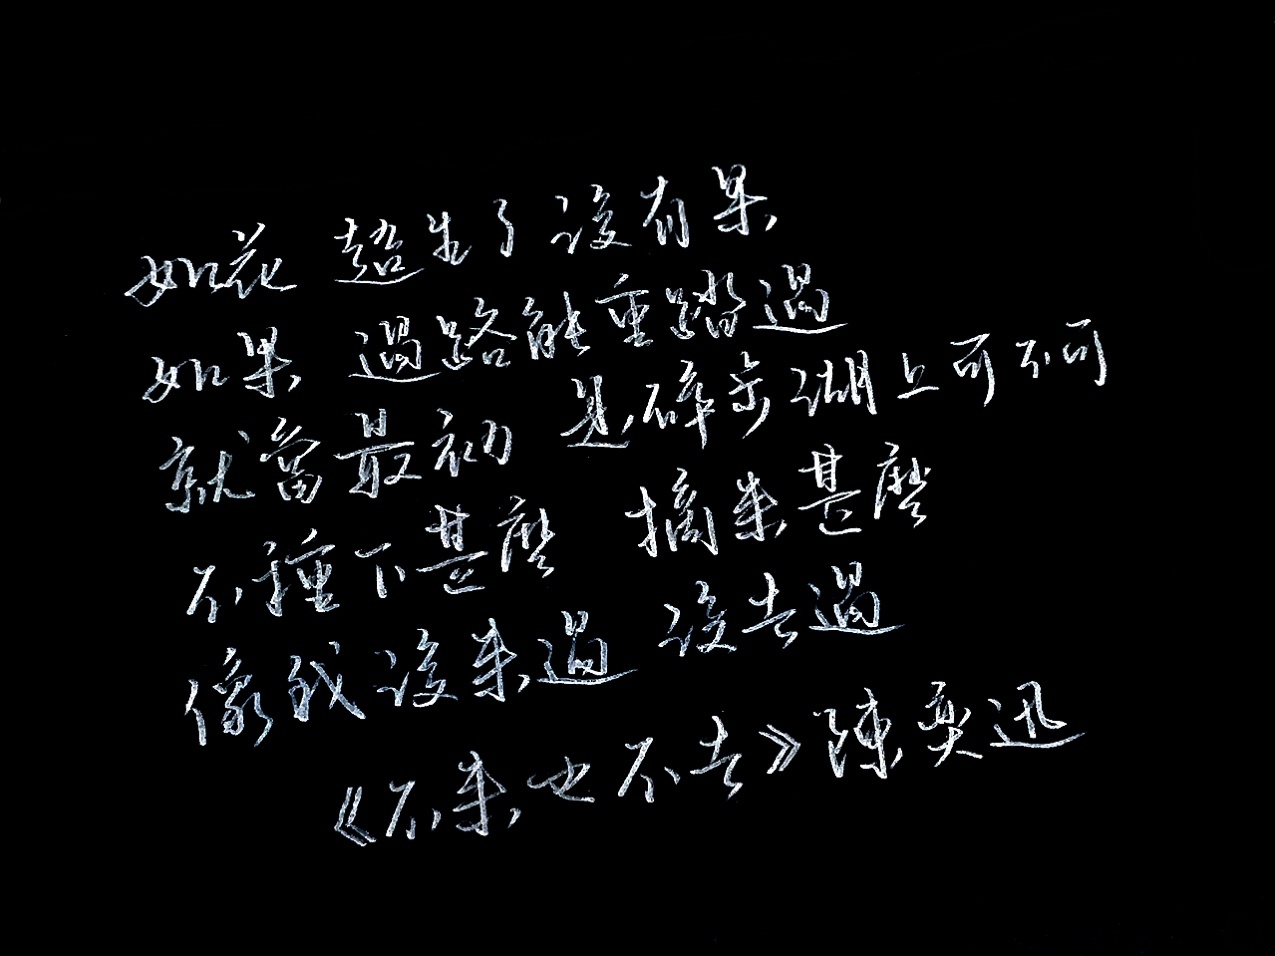 如花 超生了沒有果
如果 過路能重踏過
就當最初 是碎步湖上可不可
不種下甚麼 摘來甚麼
像我沒來過 沒去過
《不來也不去》陳奕迅